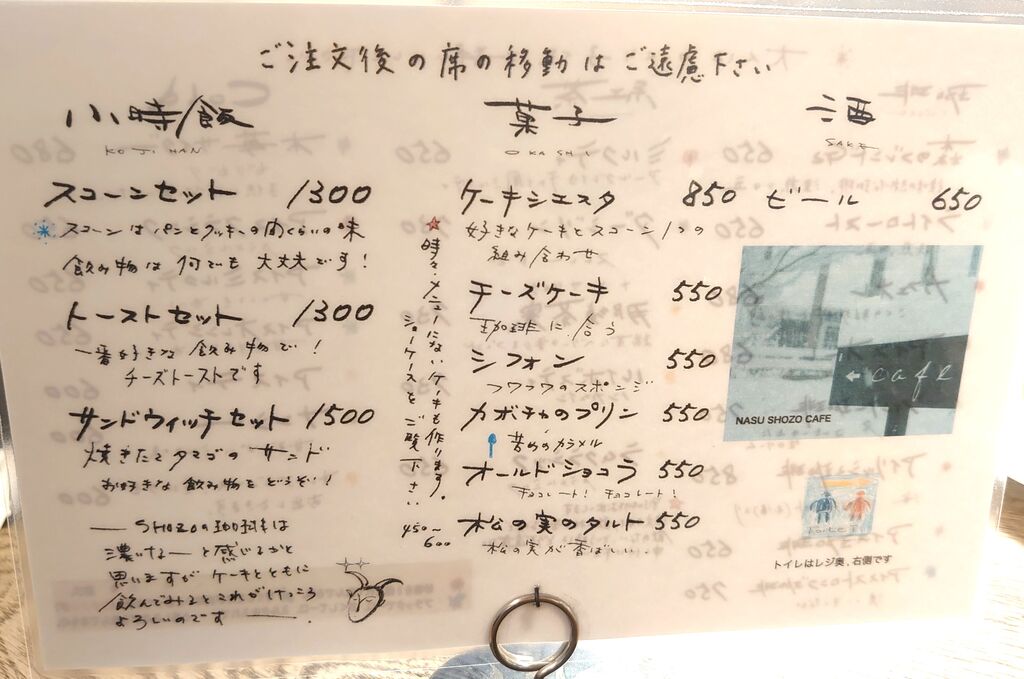 ご注文後の席の移動はご遠慮下さい
小時飯
KOJI HAN
スコーンセット 1300
スコーンはパンとクッキーの間くらいの味
飲み物は何でも大丈夫です!
トーストセット 1300
一番好きな飲み物で!
チーズトーストです
サンドウィッチセット 1500
焼きたてタマゴのサンド
お好きな飲み物をどうぞ!
SHOZOの珈琲は
濃いなーと感じるかと
思いますがケーキとともに
飲んでみるとこれがけっこう
よろしいのです
菓子
OKASHI
ケーキシエスタ 850
好きなケーキとスコーン1つの
組み合わせ
チーズケーキ 550
珈琲に合う
シフォン 550
フワフワのスポンジ
カボチャのプリン 550
昔ながらのカラメル
オールドショコラ 550
チョコレート!チョコレート!
松の実のタルト 550
松の実が香ばしい.
時々、メニューにないケーキも作ります。
ショーケースをご覧下さい
450~
600
酒
SAKE
ビール 650
← cafe
NASU SHOZO CAFE
トイレはレジ奥、右側です